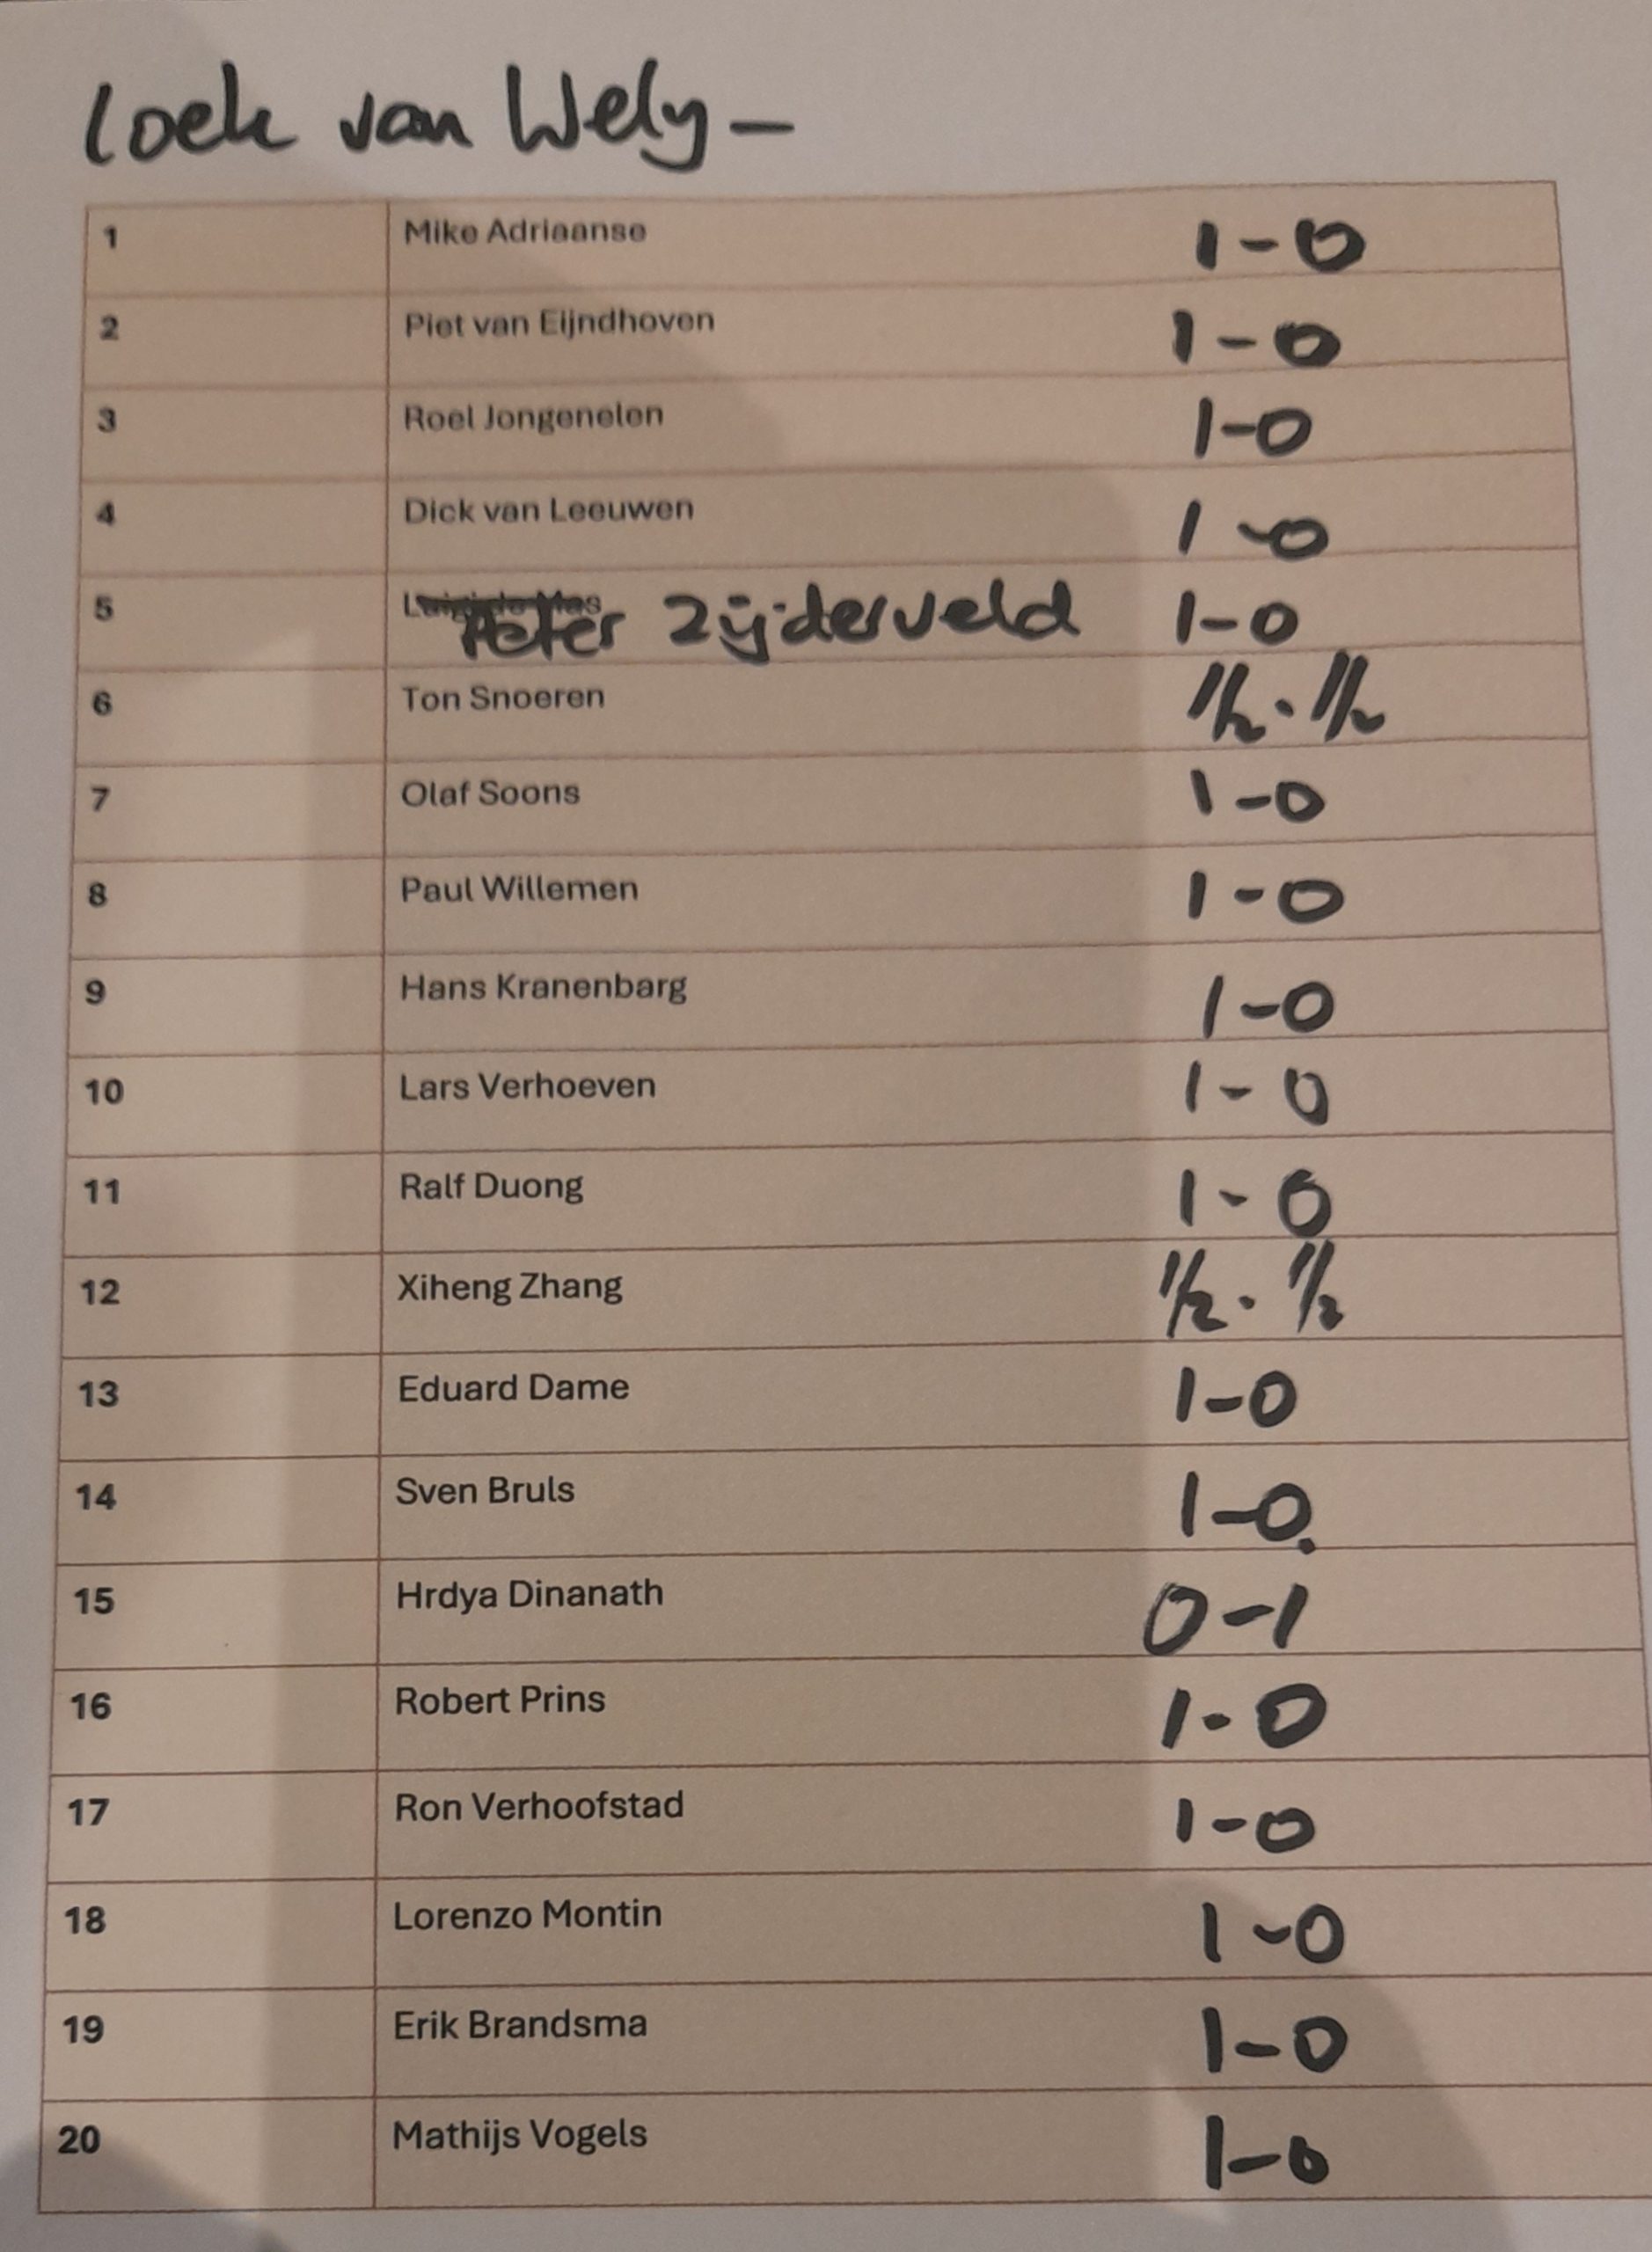 Loek van Wely –
1 Mike Adriaanse 1-0
2 Piet van Eijndhoven 1-0
3 Roel Jongenelen 1-0
4 Dick van Leeuwen 1-0
5 Peter Zijderveld 1-0
6 Ton Snoeren 1/2 · 1/2
7 Olaf Soons 1-0
8 Paul Willemen 1-0
9 Hans Kranenbarg 1-0
10 Lars Verhoeven 1-0
11 Ralf Duong 1-0
12 Xiheng Zhang 1/2 · 1/2
13 Eduard Dame 1-0
14 Sven Bruls 1-0
15 Hrdya Dinanath 0-1
16 Robert Prins 1-0
17 Ron Verhoofstad 1-0
18 Lorenzo Montin 1-0
19 Erik Brandsma 1-0
20 Mathijs Vogels 1-0